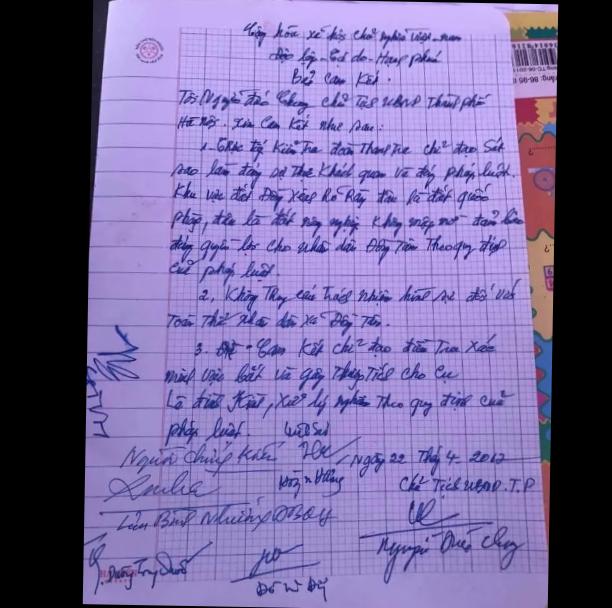 Cộng hòa xã hội chủ nghĩa việt-nam
Độc lập-Tự do-Hạnh phúc
Bản Cam Kết.
Tôi Nguyễn đức Chung chủ tịch UBND Thành phố
Hà Nội. xin Cam Kết như sau:
1. Trực tiếp Kiểm Tra đoàn Thanh tra chỉ đạo sát
sao làm đúng sự thật Khách quan và đúng pháp luật.
Khu vực đất Đồng Sênh Rõ Ràng đâu là đất quốc
phòng, đâu là đất nông nghiệp Không mập mờ đảm bảo
đúng quyền lợi cho nhân dân Đồng Tâm Theo quy định
của pháp luật.
2, Không Truy cứu trách nhiệm hình sự đối với
Toàn Thể nhân dân xã Đồng Tâm.
3. Cam Kết chỉ đạo điều Tra Xác
minh việc bắt và gây Thương Tích cho Cụ
Lê đình Kình, Xử lý nghiêm Theo quy định của
pháp luật.
Người chứng kiến
Ngày 22 Thg 4. 2017
Chủ Tịch UBND.T.P
Lưu Bình Nhưỡng ĐBQH
Nguyễn Đức Chung
Dương Trung Quốc